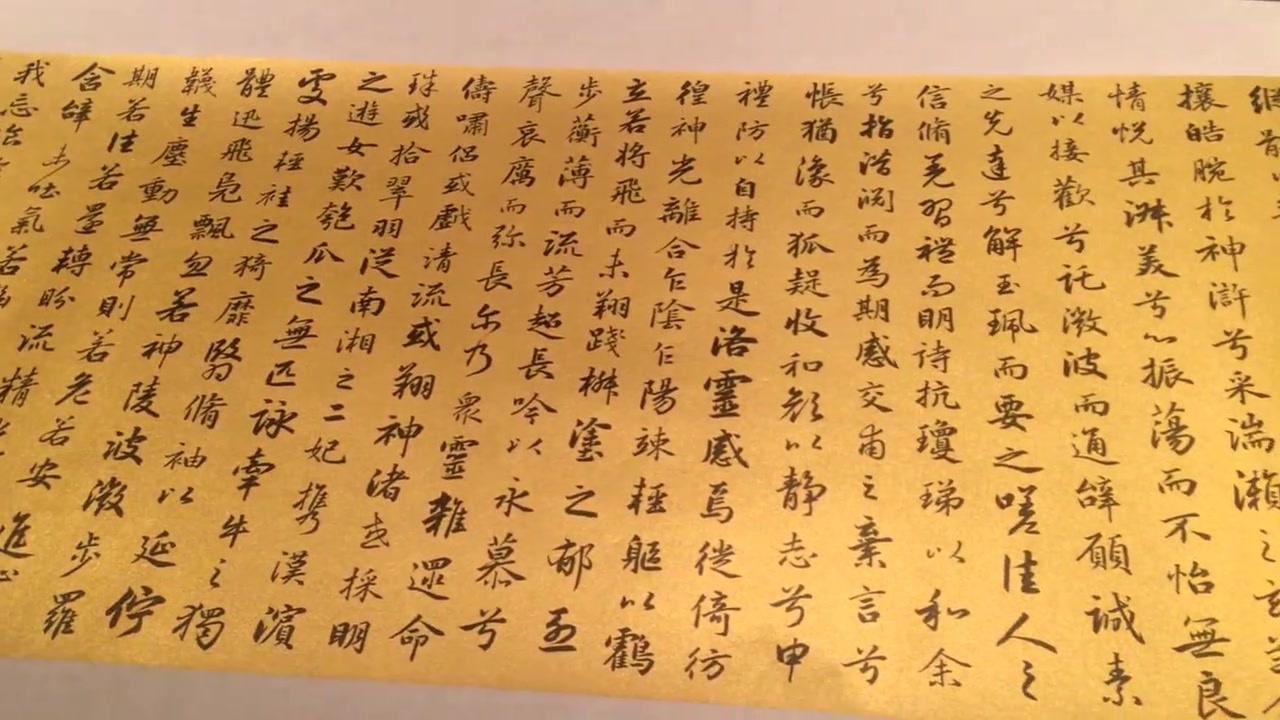 綱前
攘皓腕於神滸兮采湍瀨之
情悅其淑美兮心振蕩而不怡無良
媒以接歡兮託微波而通辭願誠素
之先達兮解玉珮而要之嗟佳人之
信脩羌習禮而明詩抗瓊珶以和余
兮指潛淵而為期感交甫之棄言兮
悵猶豫而狐疑收和顏以靜志兮申
禮防以自持於是洛靈感焉徙倚彷
徨神光離合乍陰乍陽竦輕軀以鶴
立若將飛而未翔踐椒塗之郁烈
步蘅薄而流芳超長吟以永慕兮
聲哀厲而弥長尔乃眾靈雜遝命
儔嘯侶或戲清流或翔神渚或採明
珠或拾翠羽從南湘之二妃攜漢濱
之遊女歎匏瓜之無匹詠牽牛之獨
處揚輕袿之猗靡翳脩袖以延佇
體迅飛鳧飄忽若神陵波微步羅
韈生塵動無常則若危若安進止
期若往若還轉盼流精
含辭未吐氣若
我忘